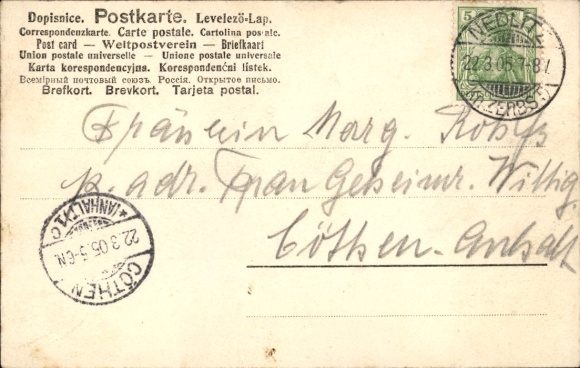 Dopisnice. Postkarte. Levelezö-Lap.
Correspondenzkarte. Carte postale. Cartolina postale.
Post card — Weltpostverein — Briefkaart
Union postale universelle — Unione postale universale
Karta korespondencyjna. Korespondenční lístek.
Всемірный почтовый союзъ. Россія. Открытое письмо.
Brefkort. Brevkort. Tarjeta postal.
5
NEDLITZ
22.3.05.7-8V.
ZERBST
Fräulein Marg.
p. adr. Frau Geheimr. Wittig
Cöthen-Anhalt
CÖTHEN
22.3.05.5-6N.
*(ANHALT)1c